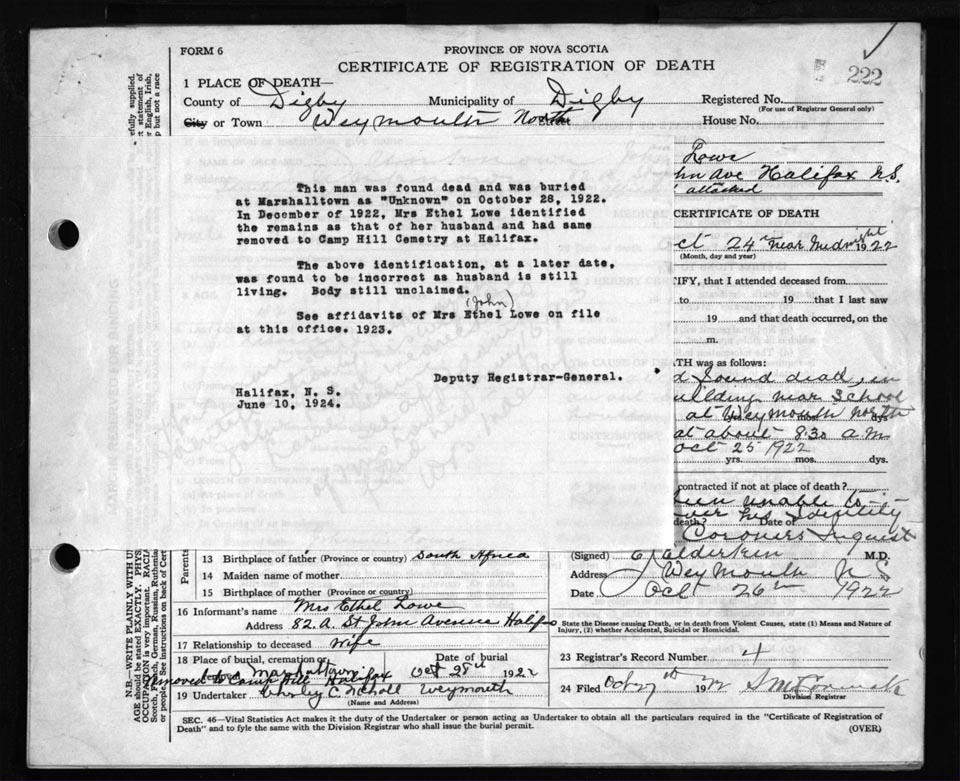 FORM 6
PROVINCE OF NOVA SCOTIA
CERTIFICATE OF REGISTRATION OF DEATH
222
1 PLACE OF DEATH—
County of Digby Municipality of Digby Registered No.
(For use of Registrar General only)
City or Town Weymouth North Street House No.
Lowe
hn Ave Halifax N.S.
attached
This man was found dead and was buried
at Marshalltown as "Unknown" on October 28, 1922.
In December of 1922, Mrs Ethel Lowe identified
the remains as that of her husband and had same
removed to Camp Hill Cemetry at Halifax.
The above identification, at a later date,
was found to be incorrect as husband is still
living. Body still unclaimed.
(John)
See affidavits of Mrs Ethel Lowe on file
at this office. 1923.
Deputy Registrar-General.
Halifax, N. S.
June 10, 1924.
CERTIFICATE OF DEATH
ct 24th near Midnight 1922
(Month, day and year)
IFY, that I attended deceased from
to 19 that I last saw
19 and that death occurred, on the
m.
ATH was as follows:
d found dead, in
uilding near School
at Weymouth North
at about 8.30 a.m
Oct 25 1922
yrs. mos. dys.
contracted if not at place of death?
been unable to
over his Identity
death? Date of
Coroners Inquest
(Signed) M.D.
Address Weymouth N S
Date Oct 26th 1922
State the Disease causing Death, or in death from Violent Causes, state (1) Means and Nature of
Injury, (2) whether Accidental, Suicidal or Homicidal.
23 Registrar's Record Number 4
24 Filed Oct 27th 1922
Division Registrar
Parents
13 Birthplace of father (Province or country) South Africa
14 Maiden name of mother
15 Birthplace of mother (Province or country)
16 Informant's name Mrs Ethel Lowe
Address 82. A. St John Avenue Halifax
17 Relationship to deceased Wife
18 Place of burial, cremation or Date of burial
Marshalltown Oct 28th 1922
Removed to Camp Hill Halifax
19 Undertaker Nicholl Weymouth
(Name and Address)
SEC. 46—Vital Statistics Act makes it the duty of the Undertaker or person acting as Undertaker to obtain all the particulars required in the "Certificate of Registration of
Death" and to fyle the same with the Division Registrar who shall issue the burial permit.
(OVER)